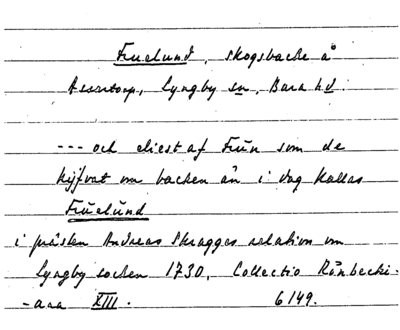 Fruelund, skogsbacke å
Assartorp, Lyngby sn, Bara hd.
--- och eliest af Frūn som de
kijfvat om backen än i dag kallas
Frūelūnd
i prästen Andreas Skragges relation om
Lyngby socken 1730, Collectio Rönbecki-
-ana XIII. 6149.